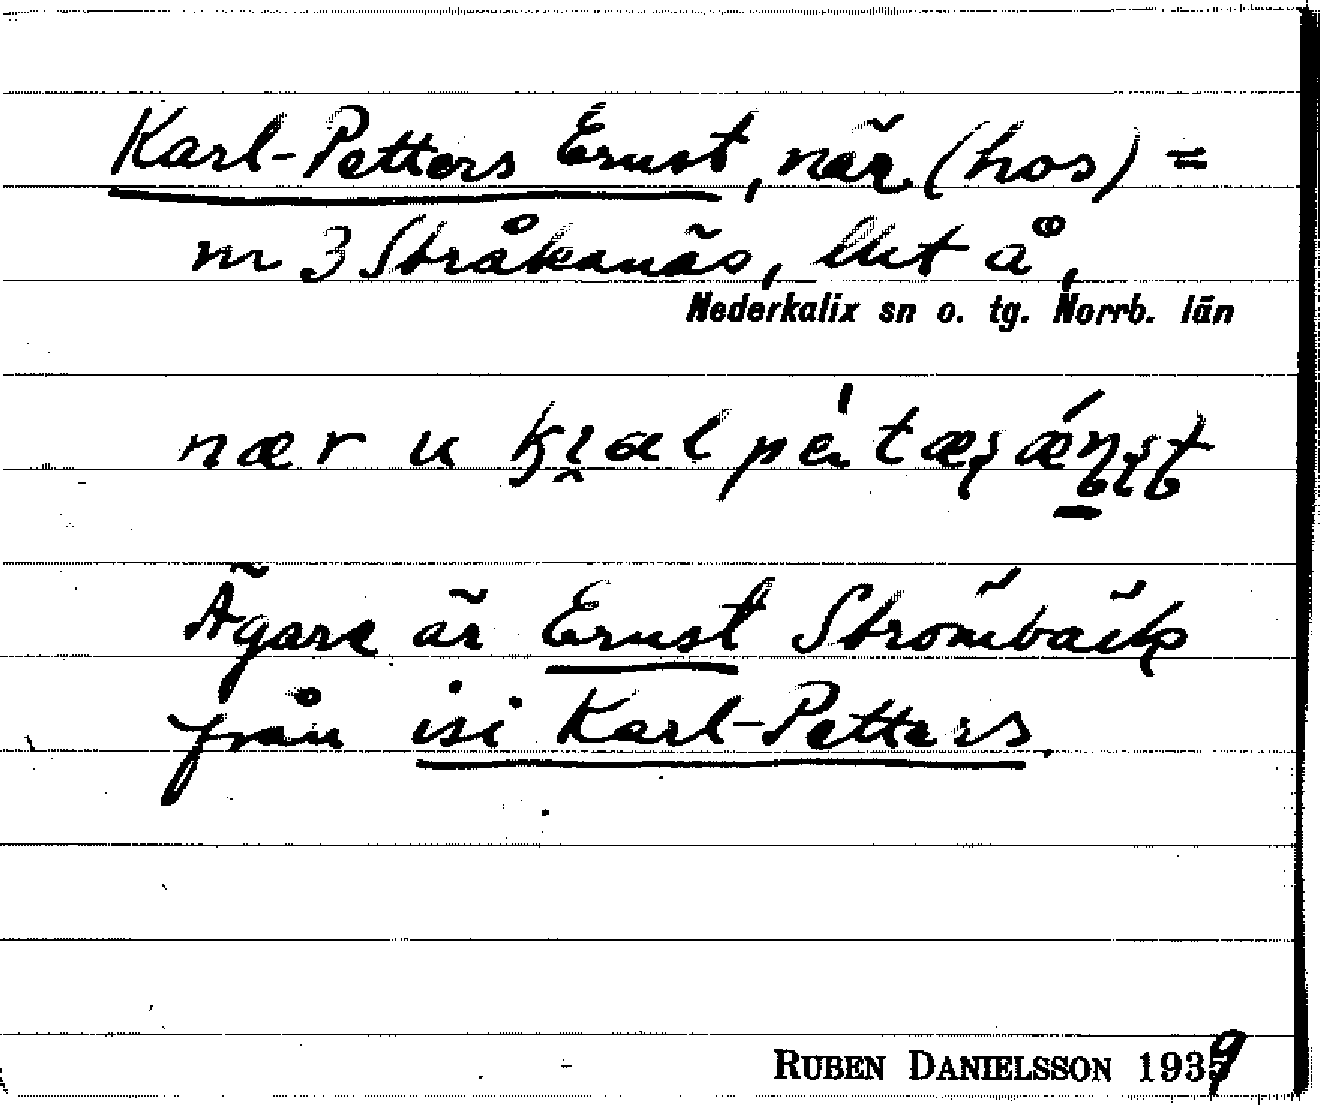 Karl-Petters Ernst, när (hos) =
nr 3 Stråkanäs, litt aº,
Nederkalix sn o. tg. Norrb. län
nær u
Ägare är Ernst Strömbäck
från isi Karl-Petters.
RUBEN DANIELSSON 1939